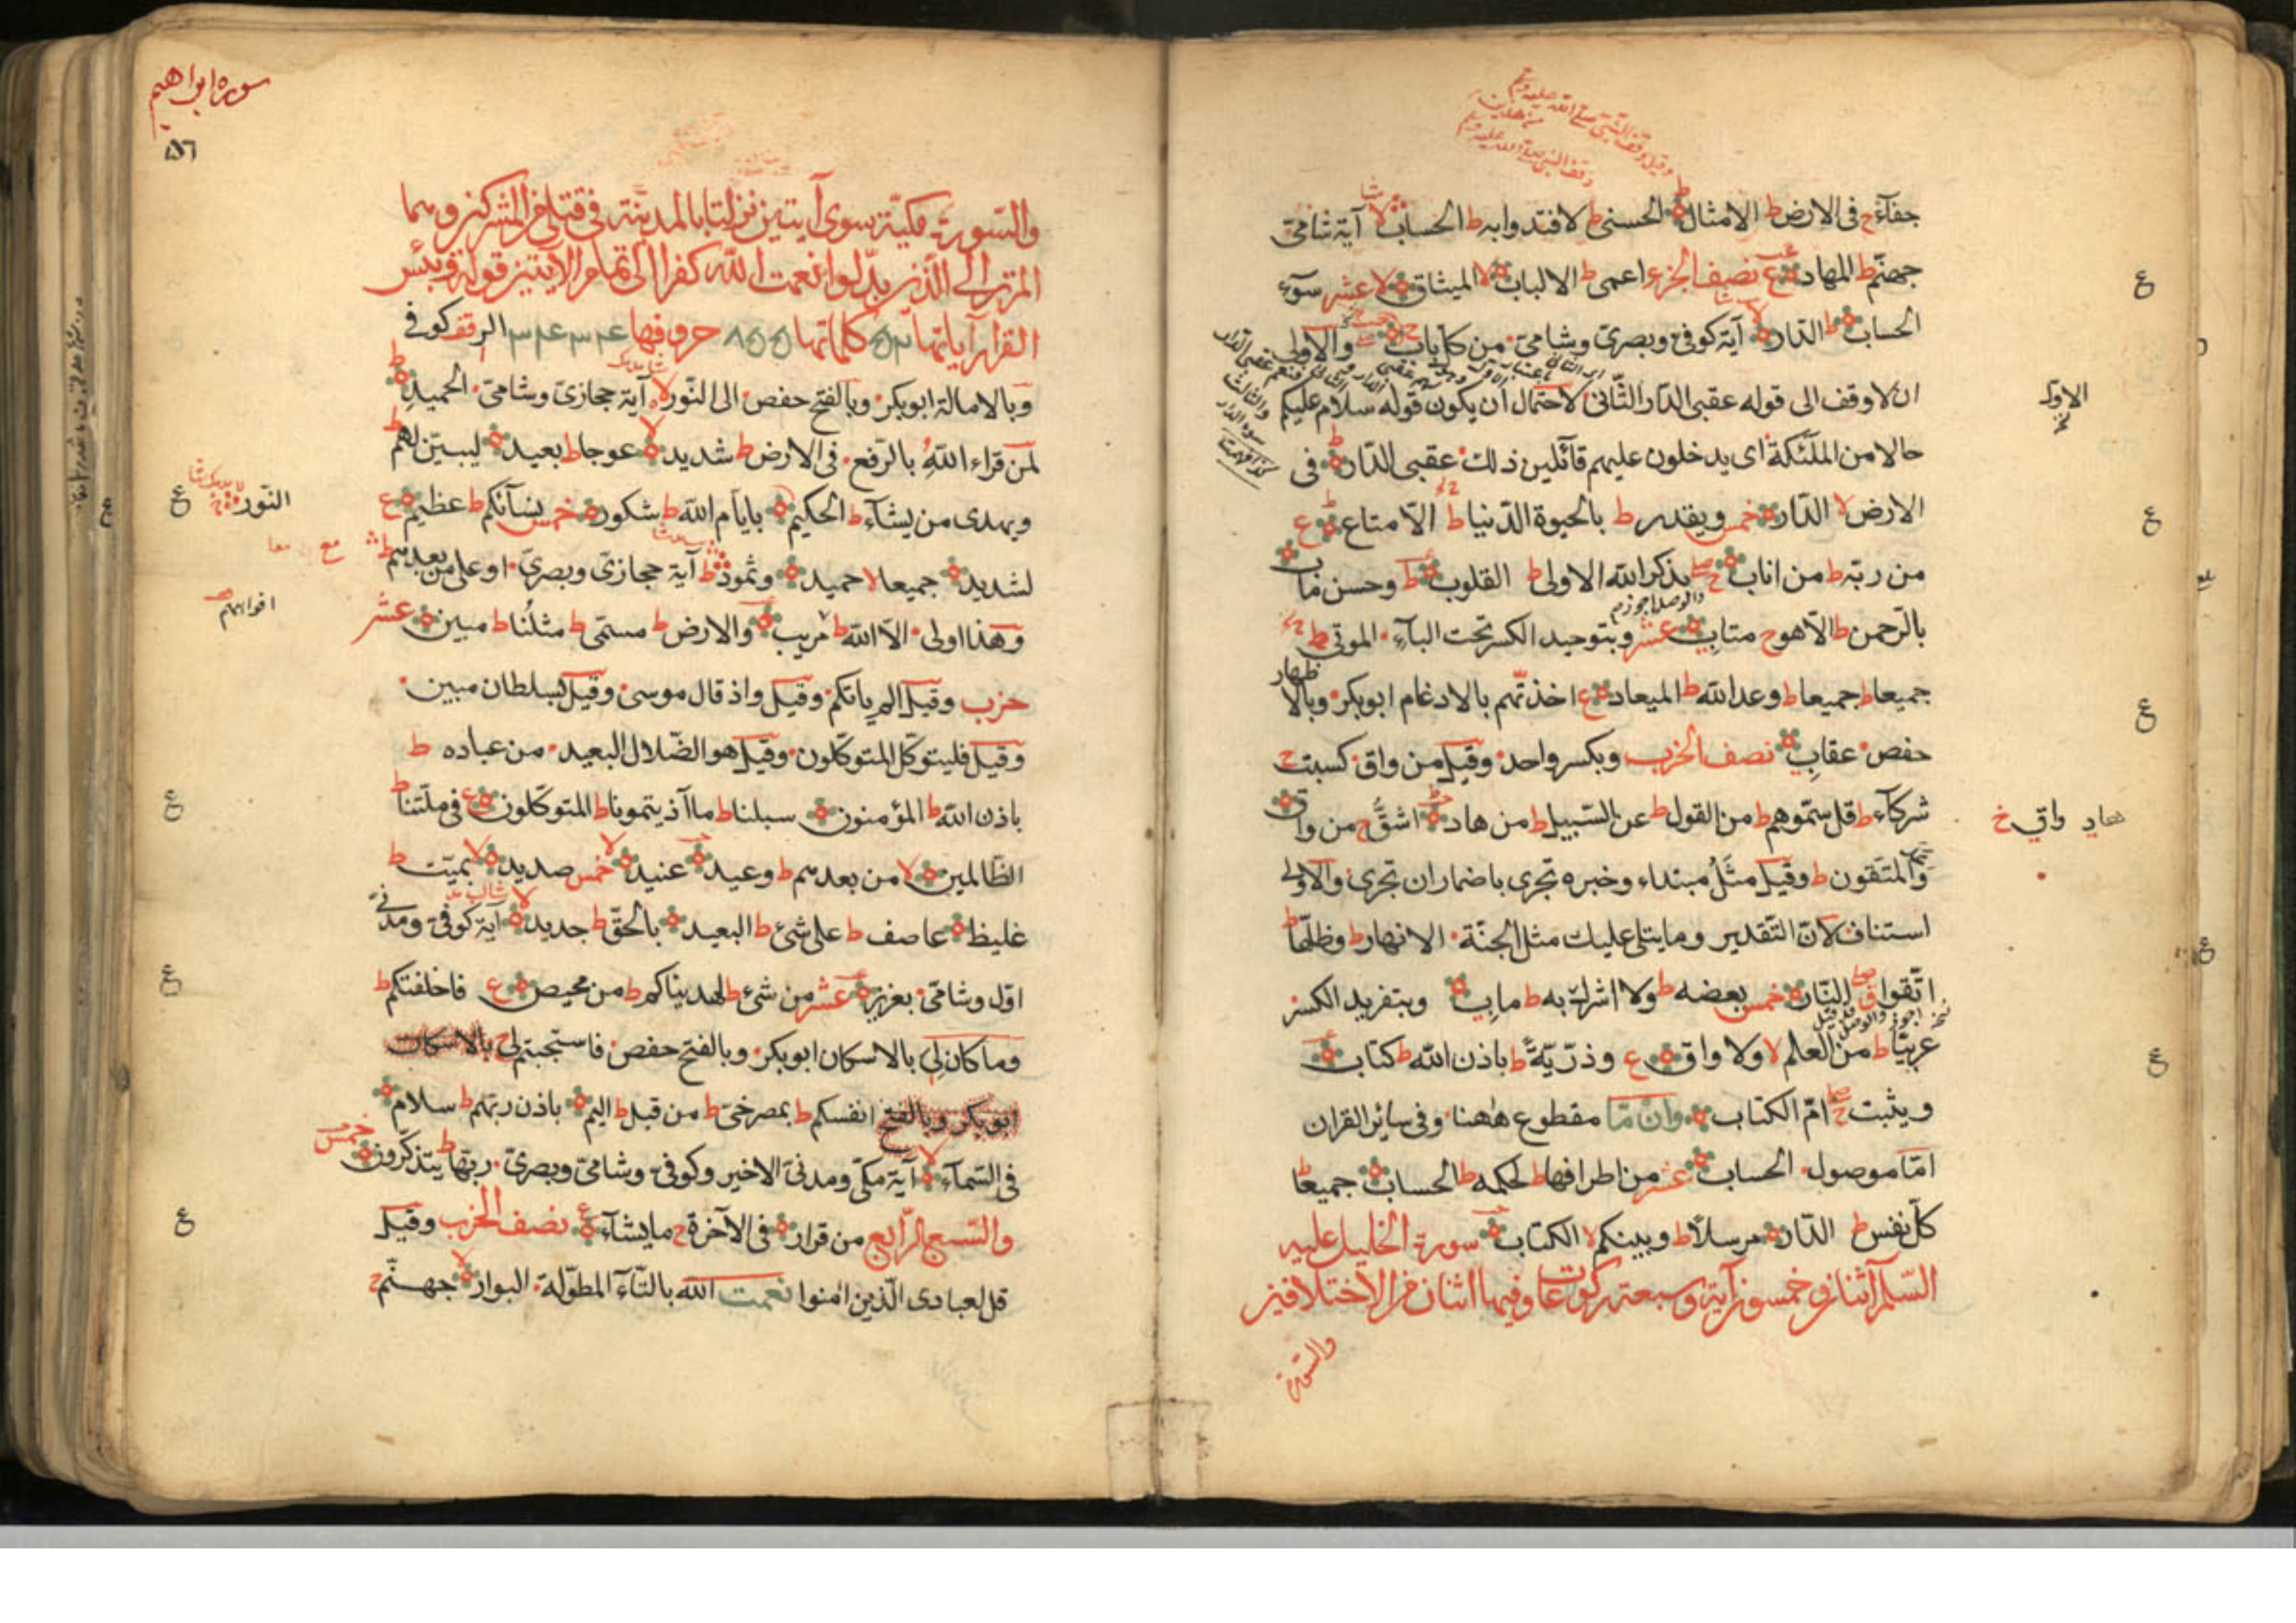 جفآءً ح فى الارض ط الامثال ط الحسنى ط لافتدوا به ط الحساب لا آية شامى
جهنم ط المهاد ع نصف الجزء اعمى ط الالباب لا الميثاق لا عشر سوء
الحساب ط الدار لا آية كوفى وبصرى وشامى من كل باب ج والاولى
ان لا وقف الى قوله عقبى الدار الثانى لاحتمال ان يكون قوله سلام عليكم
حالا من الملئكة اى يدخلون عليهم قائلين ذلك عقبى الدار ط فى
الارض لا الدار خمس ويقدر ط بالحيوة الدنيا ط الا متاع ط ع
من ربه ط من اناب ج صلى بذكر الله الاولى ط القلوب ط وحسن ماب
بالرحمن ط الا هو ح متاب عشر وبتوحيد الكسر تحت الباء الموتى ط
جميعا ط جميعا ط وعد الله ط الميعاد ع اخذتهم بالادغام ابوبكر وبالاظهار
حفص عقاب نصف الحزب وبكسر واحد وقيل من واق كسبت ح
شركاء ط قل سموهم ط من القول ط عن السبيل ط من هاد اشق ح من واق
والمتقون ط وقيل مثل مبتداء وخبره تجرى باضمار ان تجرى والاولى
استناف لان التقدير وما يتلى عليك مثل الجنة الانهار ط وظلها ط
اتقوا ق صلى النار خمس بعضه ط ولا اشرك به ط ماب وبتفريد الكسر
عربيا ط من العلم لا ولا واق ع وذرية ط باذن الله ط كتاب
ويثبت ج صلى ام الكتاب وان ما مقطوع ههنا وفى سائر القران
اما موصول الحساب عشر من اطرافها ط لحكمه ط الحساب جميعا ط
كل نفس ط الدار مرسلا ط وبينكم لا الكتاب سورة الخليل عليه
السلم اثنان وخمسون آية وسبعة ركوعات وفيها اثنان من الاختلافين
والسورة
الاولى
هاد واقى خ
سوره ابراهيم
١٥٦
والسورة مكية سوى آيتين نزلتا بالمدينة فى قتلى من المشركين وهما
الم تر الى الذين بدلوا نعمت الله كفرا الى تمام الآيتين قوله وبئس
القرار آياتها ٥٢ كلماتها ٨٥٥ حروفها ٣٤٣٤ الر وقف كوفى
وبالامالة ابوبكر وبالفتح حفص الى النور لا آية حجازى وشامى الحميد ط
لمن قراء الله بالرفع فى الارض ط شديد لا عوجا ط بعيد ليبين لهم ط
ويهدى من يشآء ط الحكيم بايام الله ط شكور خمس نسآئكم ط عظيم ع
لشديد جميعا لا حميد وثمود ط آية حجازى وبصرى او على من بعدهم ط
وهذا اولى الا الله ط مريب والارض ط مسمى ط مثلنا ط مبين عشر
حزب وقيل الم ياتكم وقيل واذ قال موسى وقيل بسلطان مبين
وقيل فليتوكل المتوكلون وقيل هو الضلال البعيد من عباده ط
باذن الله ط المؤمنون سبلنا ط ما آذيتمونا ط المتوكلون ع فى ملتنا ط
الظالمين لا من بعدهم ط وعيد عنيد لا خمس صديد لا بميت ط
غليظ عاصف ط على شئ ط البعيد بالحق ط جديد لا آية كوفى ومدنى
اول وشامى بعزيز عشر من شئ ط لهديناكم ط من محيص ع فاخلفتكم ط
وما كان لى بالاسكان ابوبكر وبالفتح حفص فاستجبتم لى بالاسكان
ابوبكر وبالفتح انفسكم ط بمصرخى ط من قبل ط اليم باذن ربهم ط سلام
فى السمآء لا آية مكى ومدنى الاخير وكوفى وشامى وبصرى ربها ط يتذكرون خمس
والسبع الرابع من قرار فى الآخرة ح ما يشآء ع نصف الحزب وقيل
قل لعبادى الذين امنوا نعمت الله بالتآء المطولة البوار لا جهنم ح
النور
افواههم